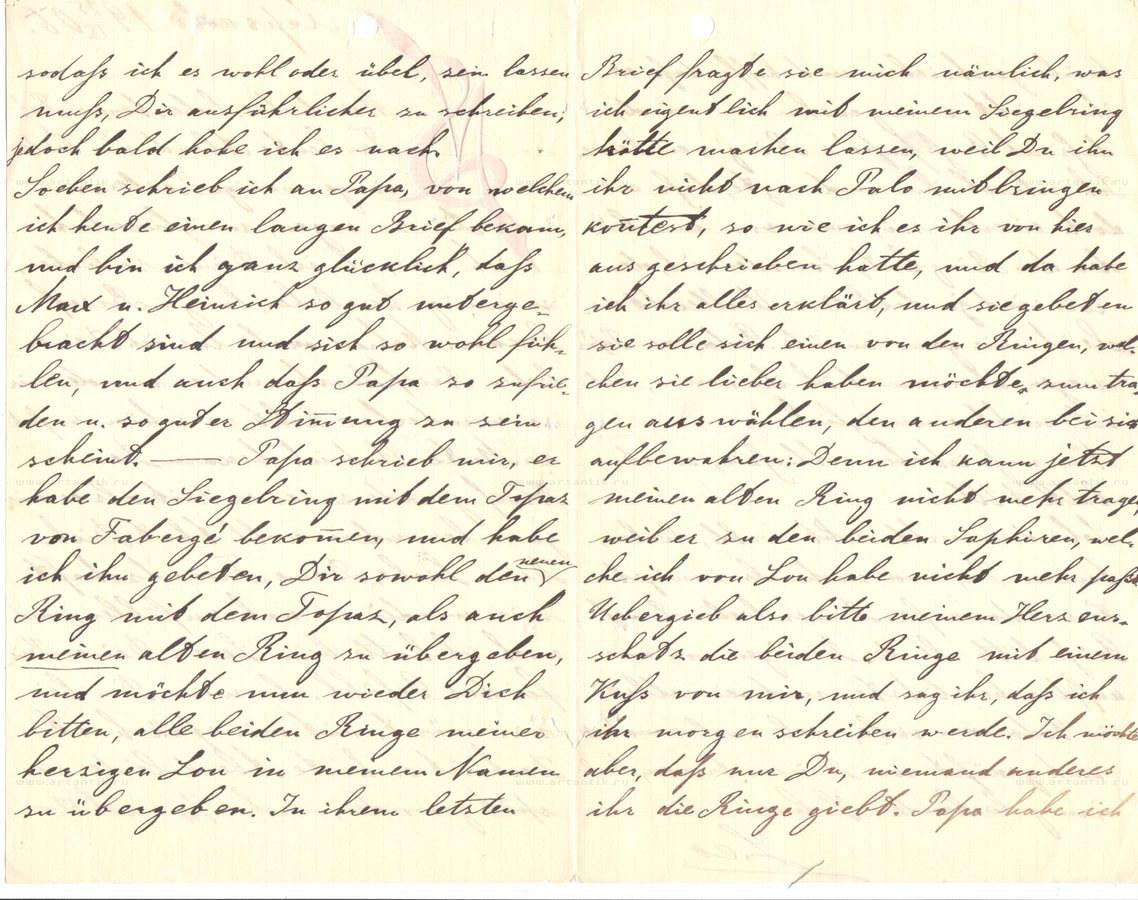 sodaß ich es wohl oder übel, sein lassen
muß, Dir ausführlicher zu schreiben;
jedoch bald hole ich es nach.
Soeben schrieb ich an Papa, von welchem
ich heute einen langen Brief bekam,
und bin ich ganz glücklich, daß
Max u. Heinrich so gut unterge-
bracht sind und sich so wohl füh-
len, und auch daß Papa so zufrie-
den u. so guter Stim̅ung zu sein
scheint. — Papa schrieb mir, er
habe den Siegelring mit dem Topaz
von Fabergé bekom̅en, und habe
ich ihn gebeten, Dir sowohl den neuen
Ring mit dem Topaz, als auch
meinen alten Ring zu übergeben,
und möchte nun wieder Dich
bitten, alle beiden Ringe meiner
herzigen Lou in meinem Namen
zu übergeben. In ihrem letzten
Brief fragte sie mich nämlich, was
ich eigentlich mit meinem Siegelring
hätte machen lassen, weil Du ihn
ihr nicht nach Palo mitbringen
kon̅test, so wie ich es ihr von hier
aus geschrieben hatte, und da habe
ich ihr alles erklärt, und sie gebeten
sie solle sich einen von den Ringen, wel-
chen sie lieber haben möchte, zum tra-
gen auswählen, den anderen bei sich
aufbewahren: Denn ich kann jetzt
meinen alten Ring nicht mehr tragen
weil er zu den beiden Saphiren, wel-
che ich von Lou habe nicht mehr paßt.
Uebergieb also bitte meinem Herzens-
schatz die beiden Ringe mit einem
Kuß von mir, und sag ihr, daß ich
ihr morgen schreiben werde. Ich möchte
aber, daß nur Du, niemand anderes
ihr die Ringe giebt. Papa habe ich
www.artantik.ru